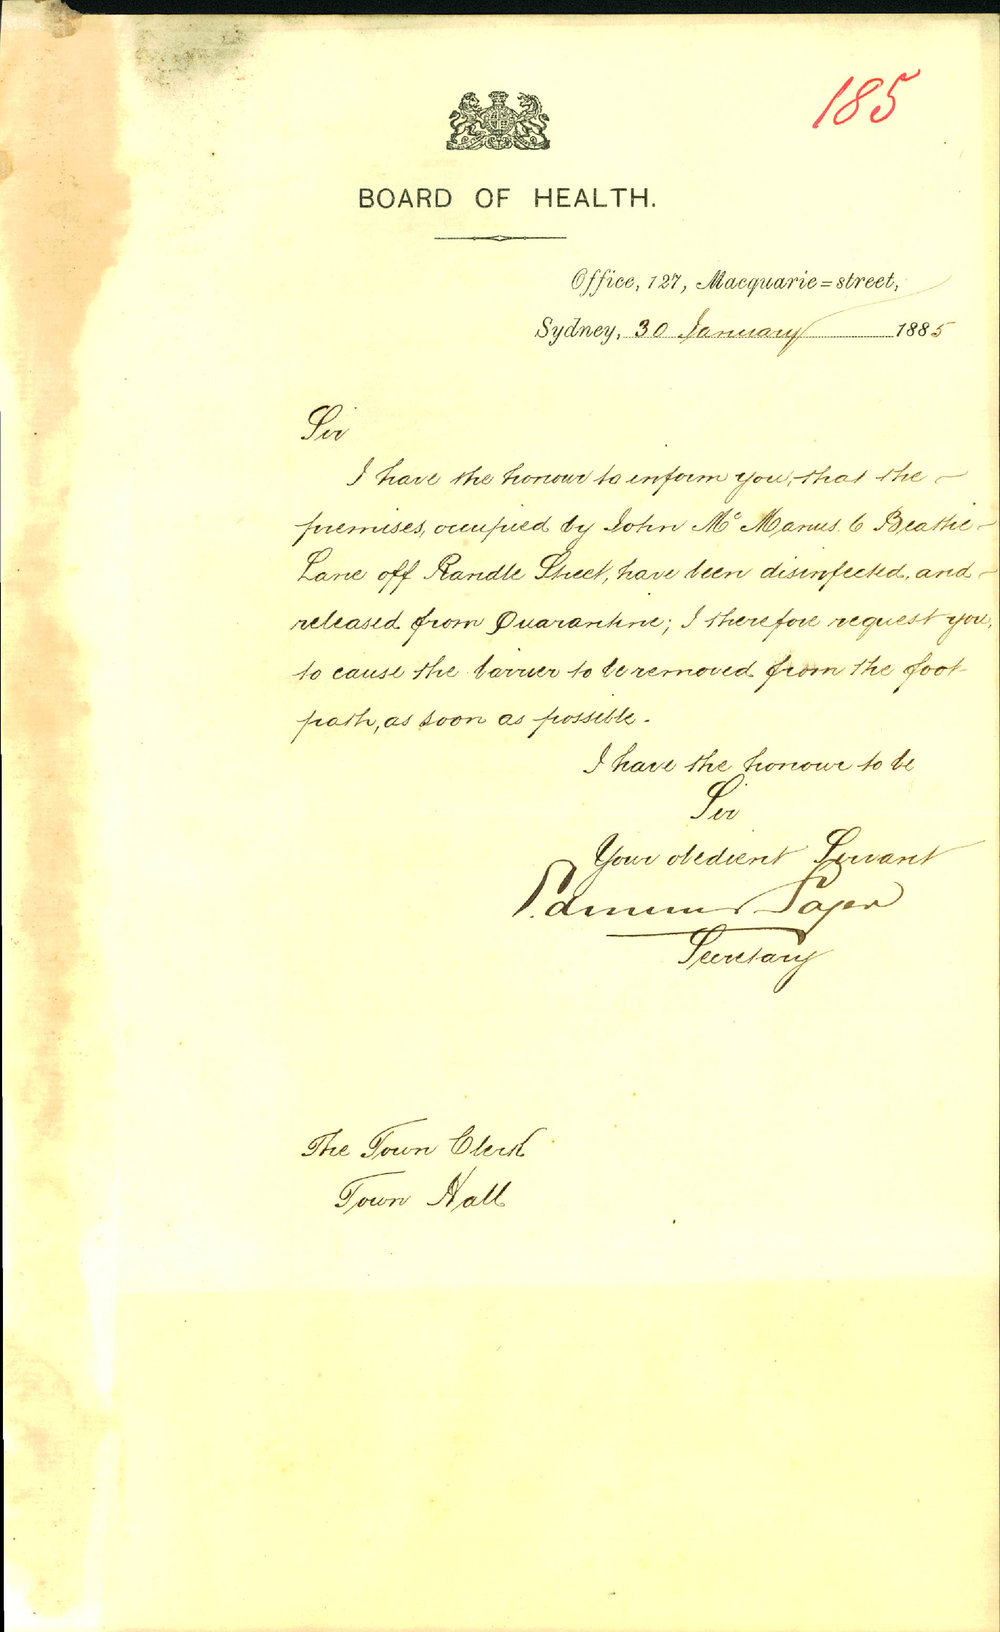 185
BOARD OF HEALTH.
Office, 127, Macquarie=street,
Sydney, 30 January 1885
Sir
I have the honour to inform you, that the
premises, occupied by John McManus 6 Beattie
Lane off Randle Street, have been disinfected, and
released from Quarantine; I therefore request you,
to cause the barrier to be removed from the foot
path, as soon as possible.
I have the honour to be
Sir
Your obedient Servant
Edmund Sager
Secretary
The Town Clerk
Town Hall